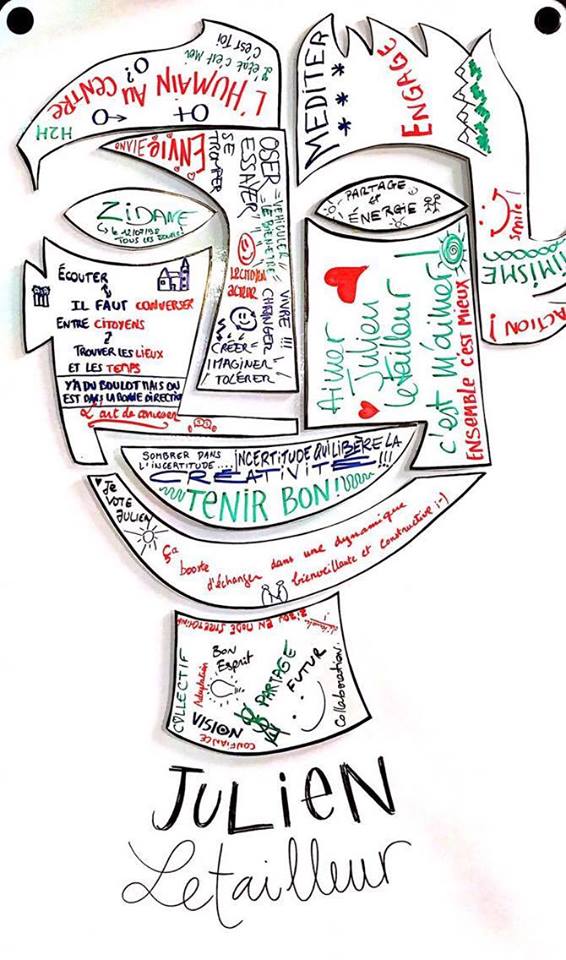 L'état c'est moi
C'est toi
L'HUMAIN AU CENTRE
H2H
MEDITER
***
ENGAGÉ
smile!
ACTION!
ENVIE
SE
TROMPER
OSER =
ESSAYER
VÉHICULER
LE BIEN ÊTRE
VIVRE !!!
CHANGER
LE CITOYEN
ACTEUR
CRÉER =
IMAGINER
TOLÉRER!
ZIDANE
↳ le 12/07/98
TOUS LES JOURS!
PARTAGE
et
ÉNERGIE
ÉCOUTER
IL FAUT CONVERSER
ENTRE CITOYENS
?
TROUVER LES LIEUX
ET LES TEMPS
Y'A DU BOULOT MAIS ON
EST DANS LA BONNE DIRECTION
L'art de converser
Aimer
Julien
Letailleur!
c'est m'aimer!
ENSEMBLE C'EST MIEUX
SOMBRER DANS
L'INCERTITUDE....
INCERTITUDE QUI LIBÈRE LA
CRÉATIVITÉ!!!
TENIR BON!
Je
VOTE
JULIEN
Ça
booste
d'échanger dans une dynamique
bienveillante et constructive ;-)
COLLECTIF
Adaptation
BON
Esprit
PARTAGE
FUTUR
Collaboration.
VISION
CONFIANCE
JULIEN
Letailleur